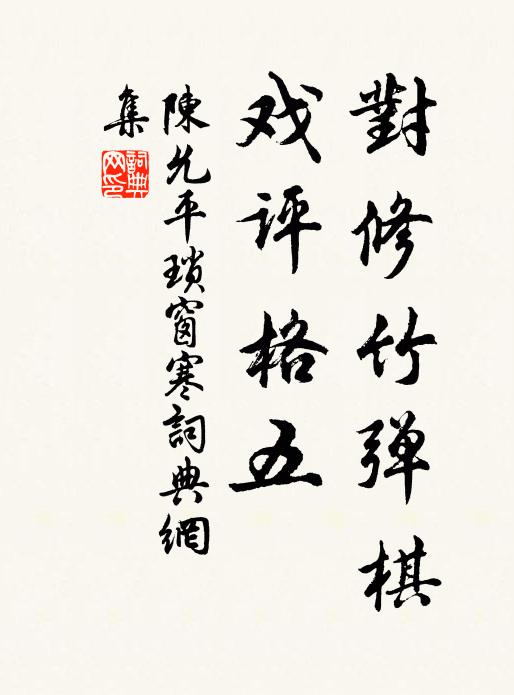 對修竹弹棋
戏评格五
陳允平瑣窗寒詞典網
集
詞典
网印